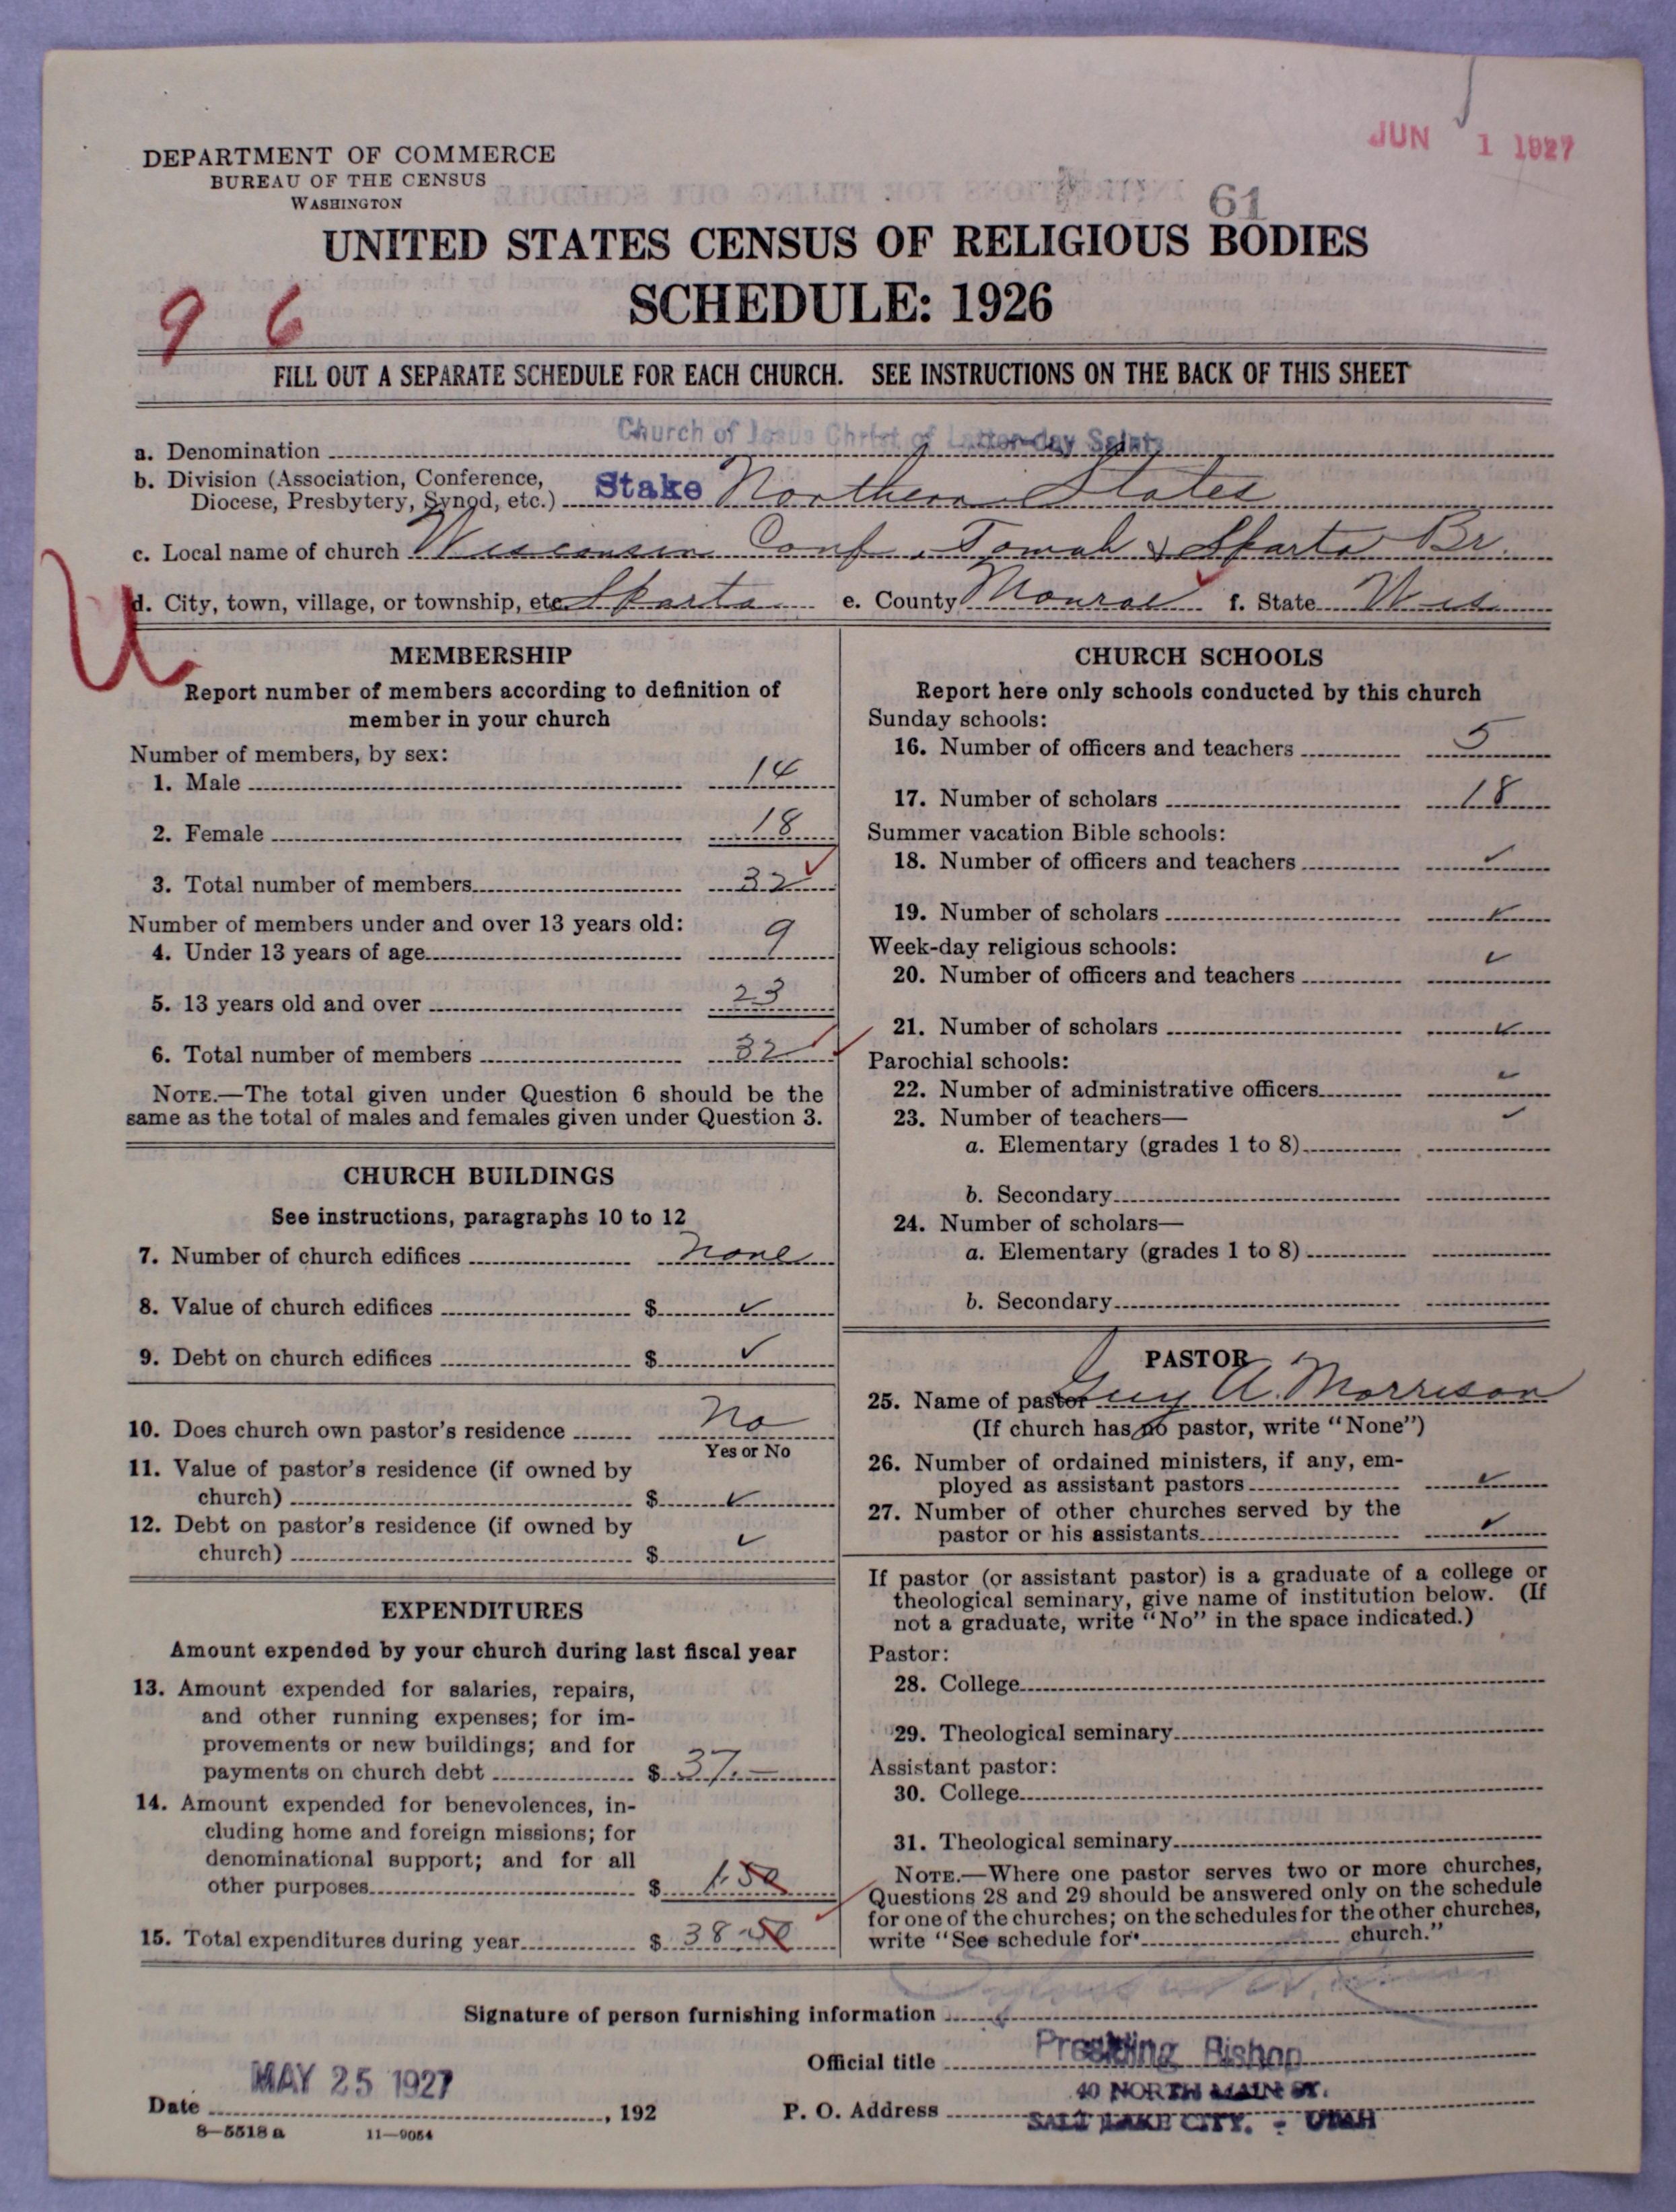 JUN 1 1927
DEPARTMENT OF COMMERCE
BUREAU OF THE CENSUS
WASHINGTON
61
UNITED STATES CENSUS OF RELIGIOUS BODIES
SCHEDULE: 1926
9 6
FILL OUT A SEPARATE SCHEDULE FOR EACH CHURCH. SEE INSTRUCTIONS ON THE BACK OF THIS SHEET
a. Denomination Church of Jesus Christ of Latter-day Saints
b. Division (Association, Conference,
Diocese, Presbytery, Synod, etc.) Stake Northern States
c. Local name of church Wisconsin Conf. Tomah & Sparta Br.
d. City, town, village, or township, etc. Sparta e. County Monroe f. State Wis
U
MEMBERSHIP
Report number of members according to definition of
member in your church
Number of members, by sex:
1. Male 14
2. Female 18
3. Total number of members 32
Number of members under and over 13 years old:
4. Under 13 years of age 9
5. 13 years old and over 23
6. Total number of members 32
NOTE.—The total given under Question 6 should be the
same as the total of males and females given under Question 3.
CHURCH BUILDINGS
See instructions, paragraphs 10 to 12
7. Number of church edifices none
8. Value of church edifices $ ✓
9. Debt on church edifices $ ✓
10. Does church own pastor's residence No
Yes or No
11. Value of pastor's residence (if owned by
church) $ ✓
12. Debt on pastor's residence (if owned by
church) $ ✓
EXPENDITURES
Amount expended by your church during last fiscal year
13. Amount expended for salaries, repairs,
and other running expenses; for im-
provements or new buildings; and for
payments on church debt $ 37.—
14. Amount expended for benevolences, in-
cluding home and foreign missions; for
denominational support; and for all
other purposes $ 1.50
15. Total expenditures during year $ 38.50
CHURCH SCHOOLS
Report here only schools conducted by this church
Sunday schools:
16. Number of officers and teachers 5
17. Number of scholars 18
Summer vacation Bible schools:
18. Number of officers and teachers ✓
19. Number of scholars ✓
Week-day religious schools:
20. Number of officers and teachers ✓
21. Number of scholars ✓
Parochial schools:
22. Number of administrative officers ✓
23. Number of teachers— ✓
a. Elementary (grades 1 to 8)
b. Secondary
24. Number of scholars—
a. Elementary (grades 1 to 8)
b. Secondary
PASTOR
25. Name of pastor Guy A. Morrison
(If church has no pastor, write "None")
26. Number of ordained ministers, if any, em-
ployed as assistant pastors ✓
27. Number of other churches served by the
pastor or his assistants ✓
If pastor (or assistant pastor) is a graduate of a college or
theological seminary, give name of institution below. (If
not a graduate, write "No" in the space indicated.)
Pastor:
28. College
29. Theological seminary
Assistant pastor:
30. College
31. Theological seminary
NOTE.—Where one pastor serves two or more churches,
Questions 28 and 29 should be answered only on the schedule
for one of the churches; on the schedules for the other churches,
write "See schedule for church."
Signature of person furnishing information
Official title Presiding Bishop
Date MAY 25 1927, 192
P. O. Address 40 NORTH MAIN ST.
SALT LAKE CITY. - UTAH
8—5518 a 11—9054